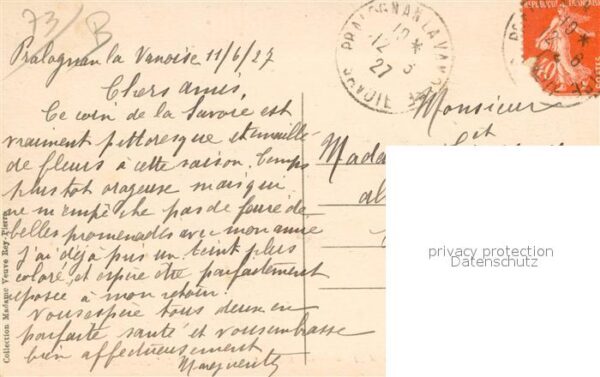 73/B
Pralognan la Vanoise 11/6/27
Chers amis,
Ce coin de la Savoie est
vraiment pittoresque et emaillé
de fleurs à cette saison. Temps
plustot orageuse mais qui
ne m'empêche pas de faire de
belles promenades avec mon amie
j'ai déjà pris un teint plus
coloré, et espère être parfaitement
reposée à mon retour.
Vous espère tous deux en
parfaite santé et vous embrasse
bien affectueusement
Marguerite
Collection Madame Veuve Rey Pierre
PRALOGNAN LA VANOISE
SAVOIE
27
Monsieur
et
Madame
privacy protection
Datenschutz